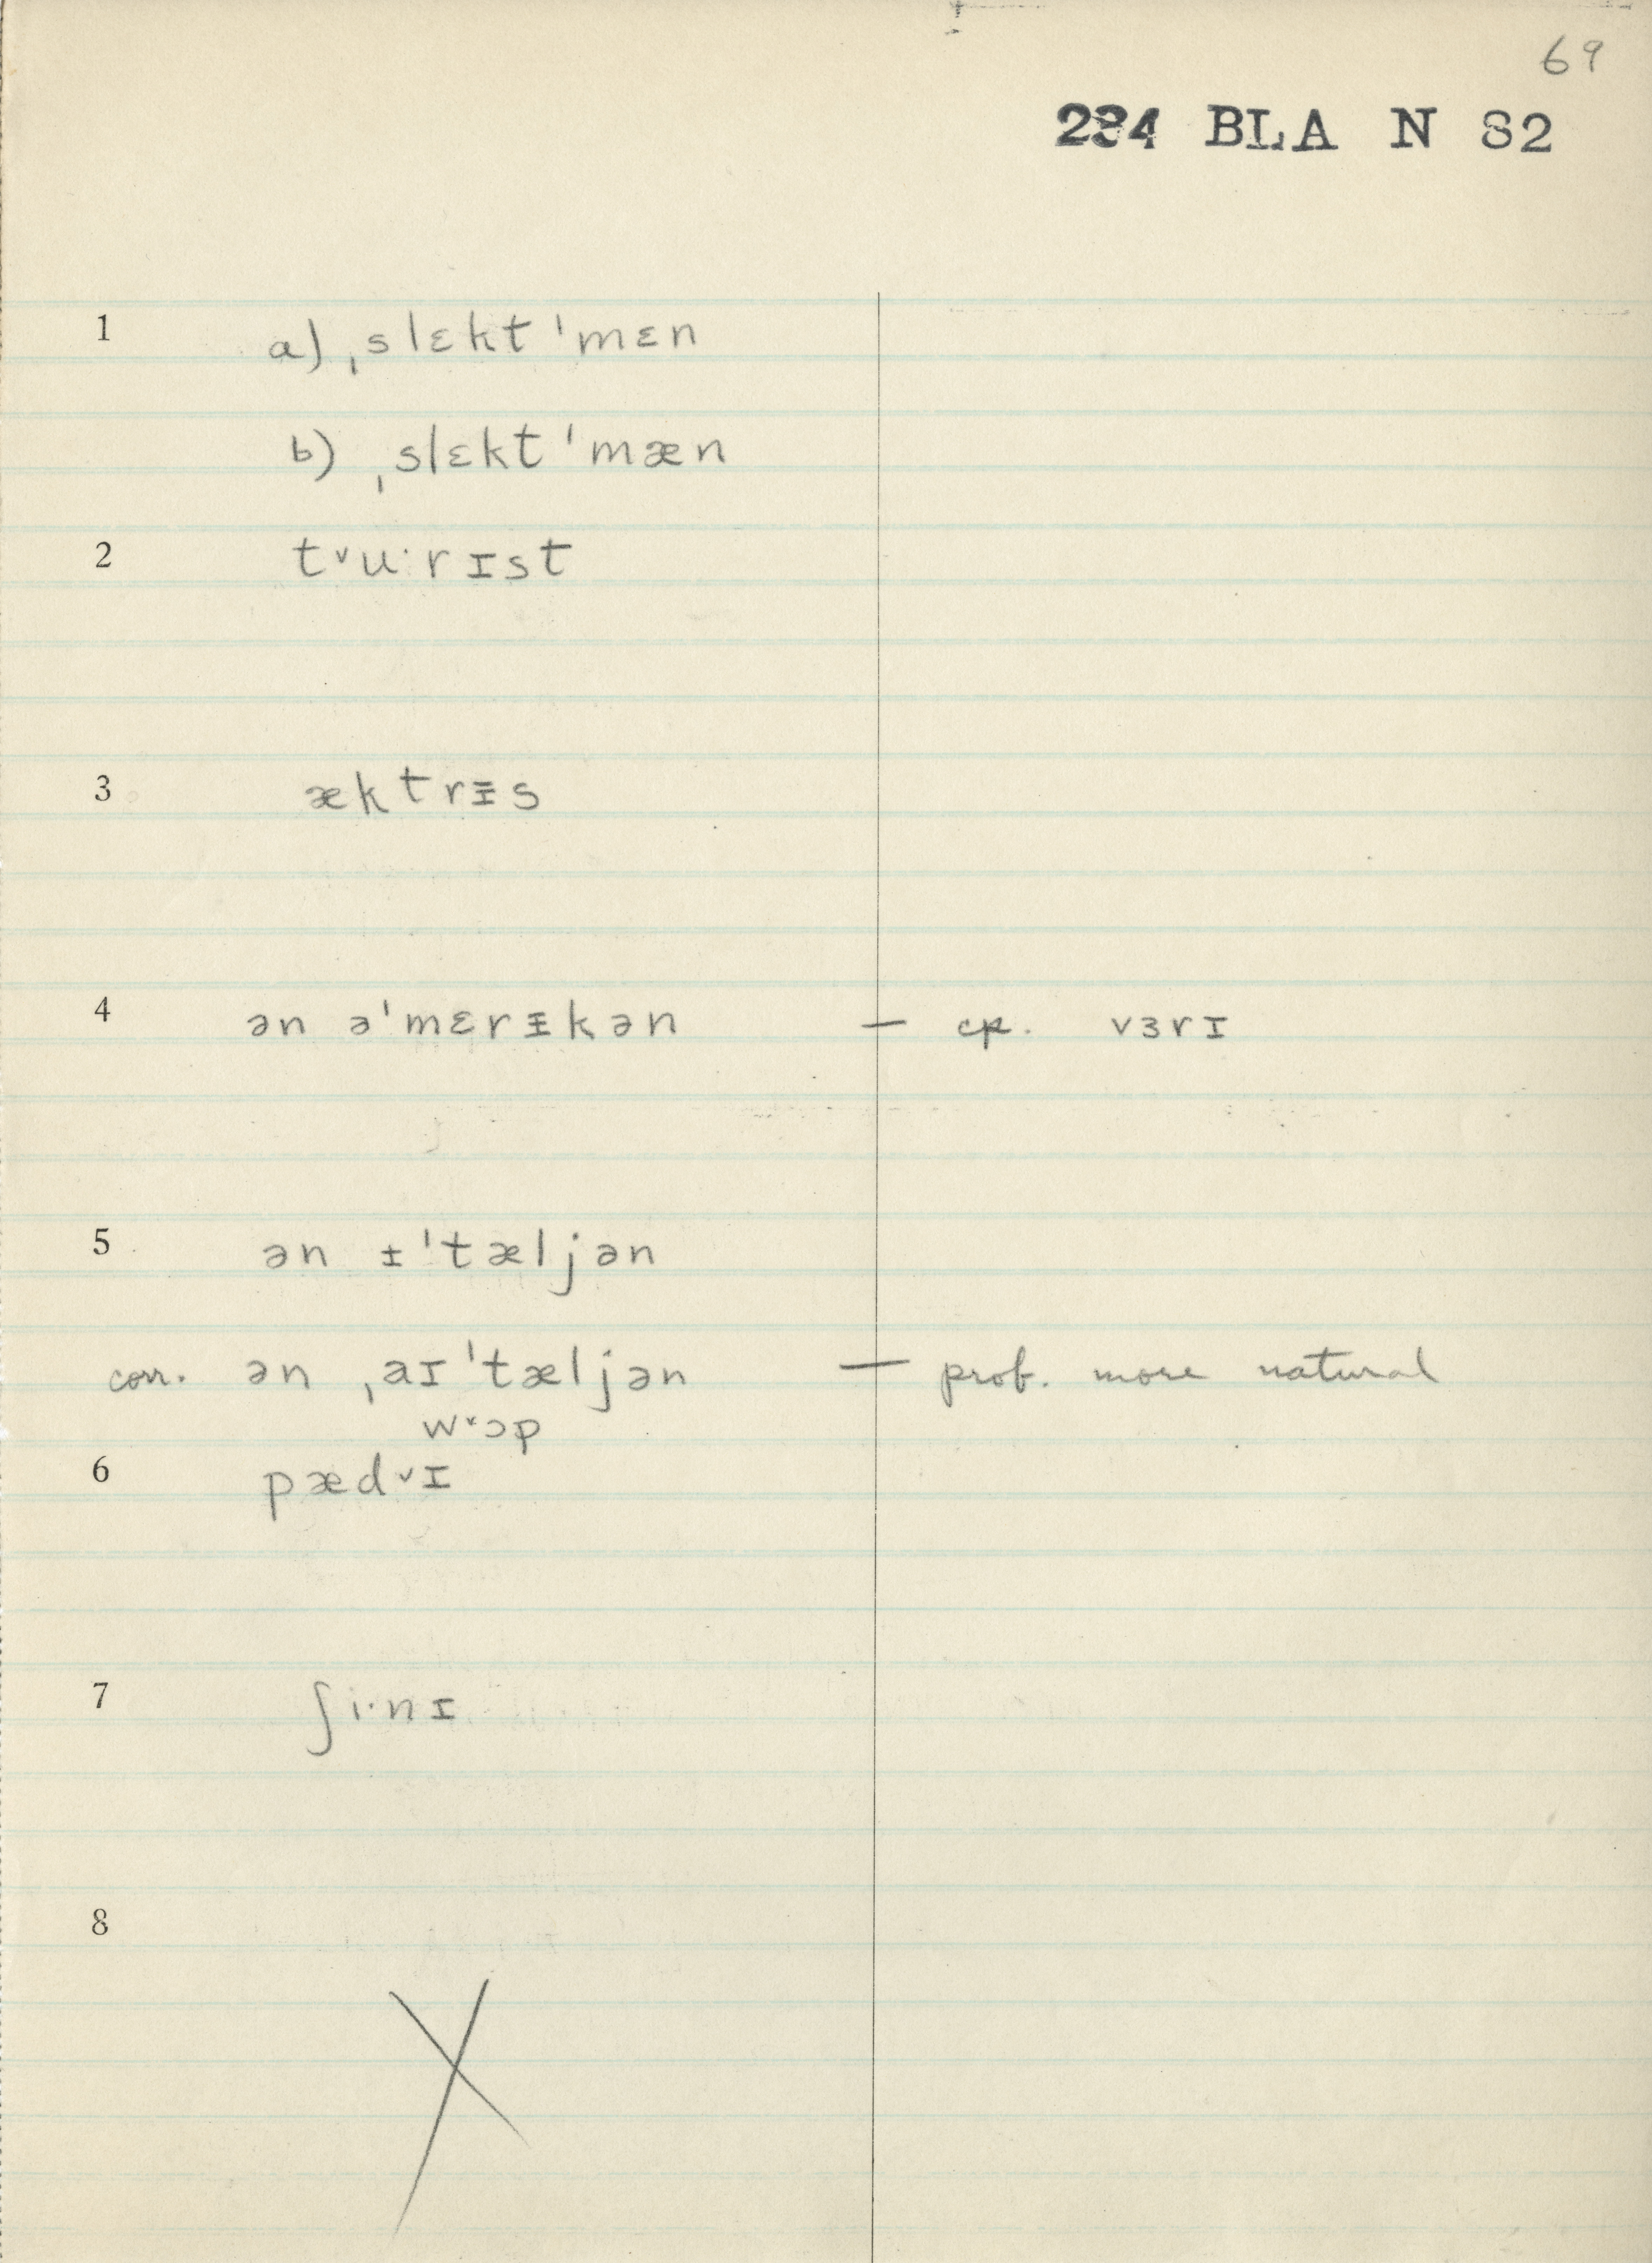 69
234 BLA N 82
1 a) ˌslɛkt ˈmɛn
b) ˌslɛkt ˈmæn
2 t˅u·rɪst
3 æktrᵻs
4 ən əˈmɛrᵻkən — cp. vɜrɪ
5 ən ᵻˈtæljən
corr. ən ˌaɪˈtæljən — prob. more natural
w˅ɔp
6 pæd˅ɪ
7 ʃi·nɪ
8